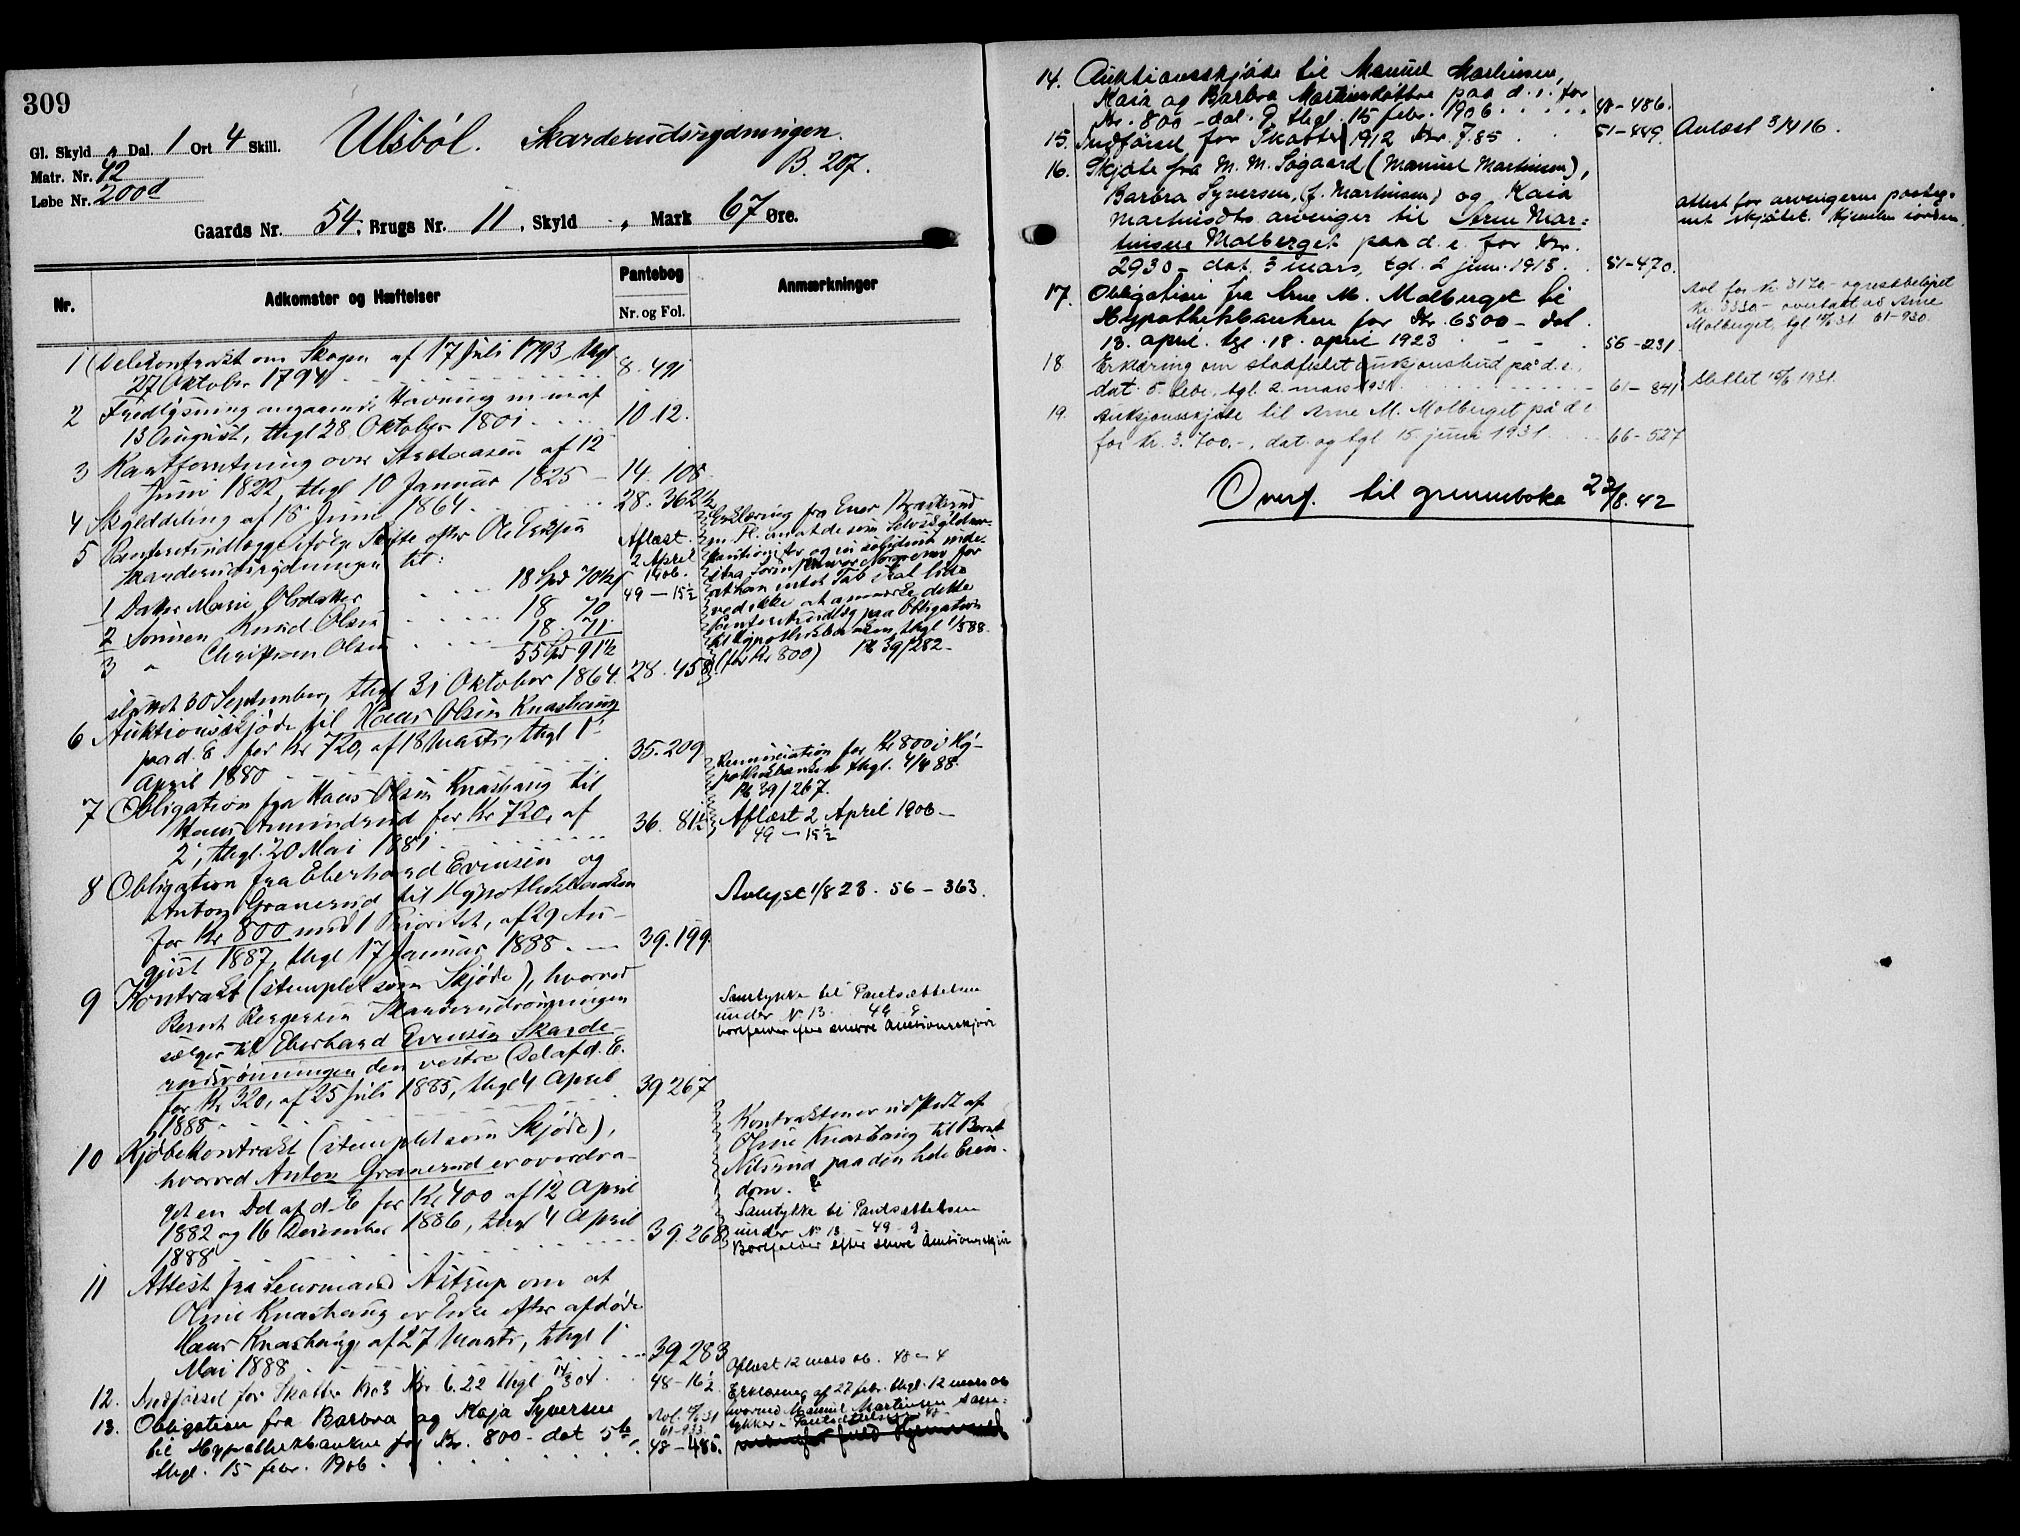 309
Gl. Skyld „ Dal. 1 Ort 4 Skill.
Ulsböl. Skarderudsrydningen.
B. 207.
Matr. Nr. 42
Løbe Nr. 200d
Gaards Nr. 54. Brugs Nr. 11, Skyld „ Mark 67 Øre.
Nr.
Adkomster og Hæftelser
Pantebog
Nr. og Fol.
Anmærkninger
1 Delekontrakt om Skogen af 17 Juli 1793, thgl
27 Oktober 1794 8. 491
2 Fredlysning angaaende Havning m.m. af
13 August, thgl 28 Oktober 1801 10. 12.
3 Kartforretning over af 12
Juni 1822, thgl 10 Januar 1825 14. 108
4 Skylddeling af 15 Juni 1864 28. 362½
5 Panteretsudlæg ifølge Skifte efter Ole
Skarderudsrydningen til:
1 Datter Marie Olsdatter 18 Spd 70½
2 Sønnen Knud Olsen 18 70
3 " Christian Olsen 18. 71.
55 Spd 91½
sluttet 30 September, thgl 31 Oktober 1864. 28. 458
Aflæst
2 April
1906.
49 – 15½
Erklæring fra Ener
at han intet Tab skal lide
ved ikke at anmærke dette
Panteretsudlæg paa Obligation
til Hypothekbanken, thgl 1/5 88.
(for Kr 800) Pb 39/282 –
6 Auktionsskjøde til Hans Olsen Knashaug
paa d. E. for Kr 720, af 18 Marts, thgl 1
April 1880 35. 209
7 Obligation fra Hans Olsen Knashaug til
Hans Amundsrud for Kr 720, af
2, thgl. 20 Mai 1881 36. 81½
Renunciation for Kr 800 i Hy-
pothekbanken thgl. 4/4 88.
Pb 39/267.
Aflæst 2 April 1906 –
49 – 15½
8 Obligation fra Eberhard Evensen og
Anton Granerud til Hypothekbanken
for Kr 800 med 1 Prioritet, af 29 Au-
gust 1887, thgl 17 Januar 1888 39. 199.
Avlyst 1/8 23. 56 – 363.
9 Kontrakt (stemplet som Skjøde), hvorved
Bernt Bergersen Skarderudrønningen
sælger til Eberhard Evensen Skarde-
rudrønningen den vestre Del af d. E.
for Kr 320, af 25 Juli 1885, thgl 4 April
1888 39 267
Samtykke til Pantsættelsen
under No 13 49. 9
bortfalder efter senere Auktionsskjøde
10 Kjøbekontrakt (stemplet som Skjøde),
hvorved Anton Granerud er overdra-
get en Del af d. E. for Kr 400 af 12 April
1882 og 16 December 1886, thgl 4 April
1888 39. 268
Kontrakten er udstedt af
Oline Knashaug til Bernt
Nilsrud paa den hele Eien-
dom.
Samtykke til Pantsættelsen
under No 13 49. 9
Bortfalder efter senere Auktionsskjøde
11 Attest fra Lensmand Astrup om at
Oline Knashaug er Enke efter afdøde
Hans Knashaug, af 27 Marts, thgl 1
Mai 1888 39 283
12. Indførsel for Skatter 1903 Kr 6.22 thgl 14/3 04. 48 – 16½
Aflæst 12 mars 06. 48 – 4
13. Obligation fra Barbra og Kaja Syversen
til Hypothekbanken for Kr. 800 – dat 5te
thgl. 15 febr. 1906. 48 – 485.
61 – 933
Erklæring af 27 febr. thgl. 12 mars 06
hvorved Manuel Martinsen sam-
tykker i Pantsættelsen
14. Auktionsskjøde til Manuel Martinsen,
Kaia og Barbra Martinsdøttre paa d. e. for
Kr. 800 – dat. 9. thgl. 15 febr. 1906 48 – 486.
15. Indførsel for Skatter 1912 Kr. 7.85 51 – 449. Avlæst 3/4 16.
16. Skjøte fra M. M. Søgaard (Manuel Martinsen),
Barbra Syversen (f. Martinsen) og Kaia
Martinsdts arvinger til Arne Mar-
tinsen Malberget paa d. e. for Kr.
2930 – dat. 3 mars, tgl. 2 juni 1918. 51 – 470.
Attest for arvingerne paateg-
net skjøtet. Hjemlen iorden.
17. Obligation fra Arne M. Malberget til
Hypothekbanken for Kr. 6500 – dat
13. april, tgl. 18. april 1923 56 – 231
Avl for kr. 3170 – og restbeløpet
kr. 3330 – overtatt av Arne
Malberget, tgl 15/6 31 61 – 930.
18. Erklæring om stadfestet auksjonsbud på d. e.,
dat 5. febr., tgl. 2. mars 1931. 61 – 841 Slettet 15/6 1931.
19. Auksjonsskjøte til Arne M. Malberget på d e
for kr. 3.700.–, dat. og tgl 15. juni 1931. 66 – 527
Overf. til grunnboka 22/8. 42